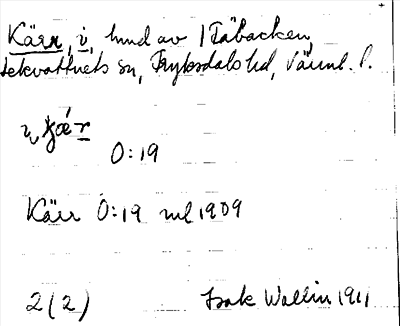 Kärr, i, hmd av 1 Täbacken,
Lekvattnets sn, Fryksdals hd, Värml. l.
O:19
Kärr O:19 ml 1909
2(2) Isak Wallin 1911